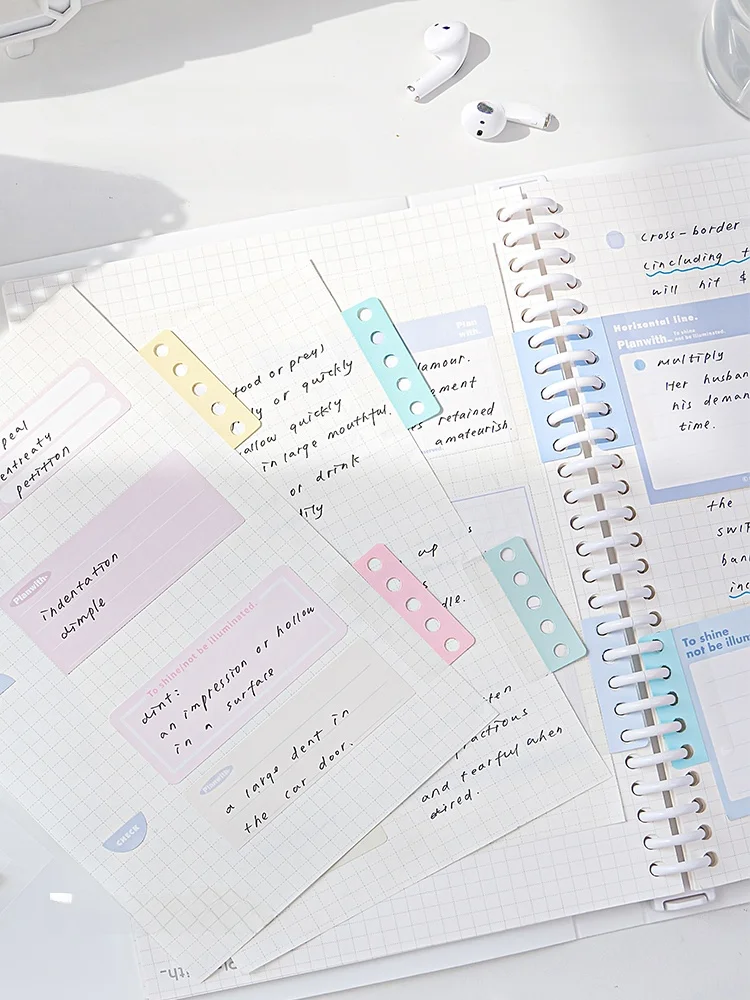 peal
entreaty
petition
Planwith
indentation
dimple
To shine not be illuminated.
dint:
an impression or hollow
in a surface
Planwith
a large dent in
the car door.
CHECK
food or prey)
ly or quickly
allow quickly
in large mouthful.
or drink
tily
Plan
with.
lamour.
ement
retained
amateurish.
up
dle.
ten
ractions
and tearful when
tired.
cross-border
(including t
will hit $
Horizontal line.
Planwith... To shine
not be illuminated.
multiply
Her husban
his deman
time.
the
SWIF
ban
inc
To shine
not be illumi